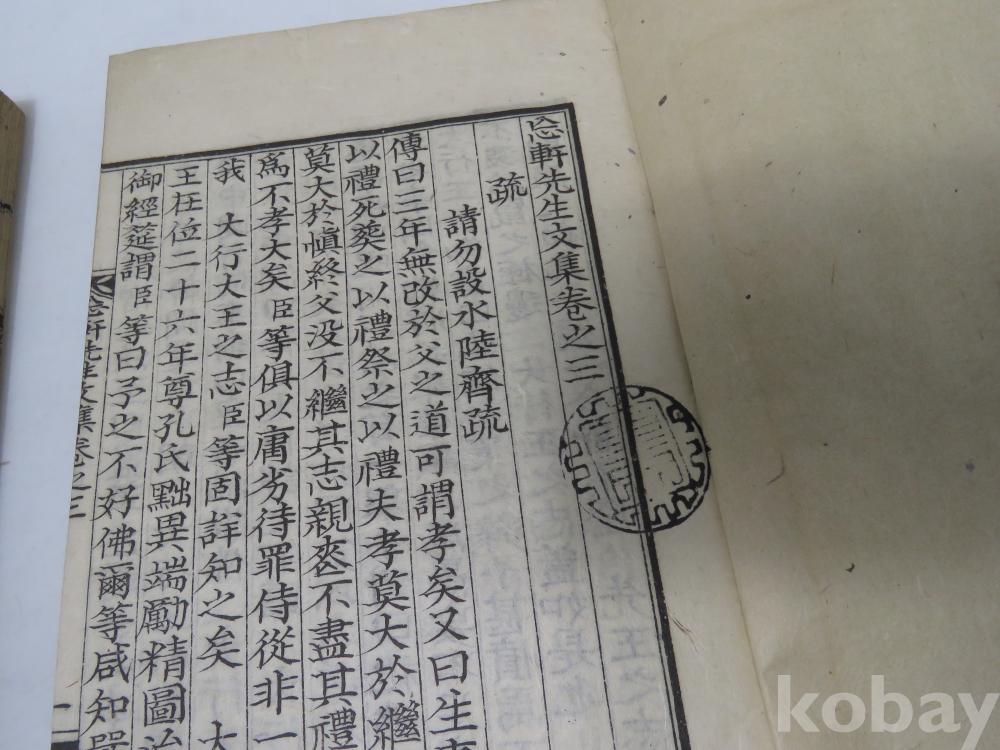 忩軒先生文集卷之三
疏
請勿設水陸齊疏
傳曰三年無改於父之道可謂孝矣又曰生
以禮死葬之以禮祭之以禮夫孝莫大於繼
莫大於愼終父没不繼其志親喪不盡其禮
爲不孝大矣臣等俱以庸劣待罪侍從非一
我 大行大王之志臣等固詳知之矣 大
王在位二十六年尊孔氏黜異端勵精圖治
御經筵謂臣等曰予之不好佛爾等咸知
軒先生文集卷之三
一
kobay